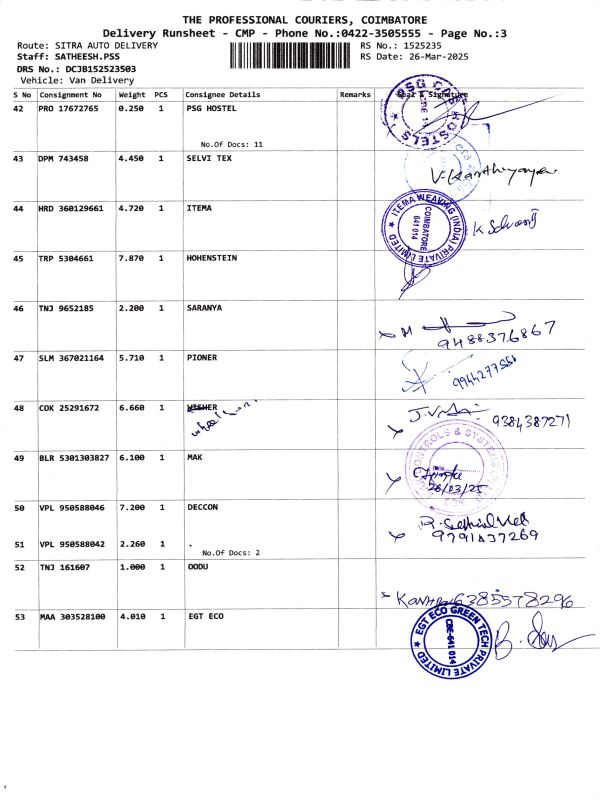 THE PROFESSIONAL COURIERS, COIMBATORE
Delivery Runsheet - CMP - Phone No.:0422-3505555 - Page No.:3
Route: SITRA AUTO DELIVERY
RS No.: 1525235
Staff: SATHEESH.PSS
RS Date: 26-Mar-2025
DRS No.: DCJB152523503
Vehicle: Van Delivery
S No Consignment No Weight PCS Consignee Details Remarks Seal & Signature
42 PRO 17672765 0.250 1 PSG HOSTEL
No.Of Docs: 11
43 DPM 743458 4.450 1 SELVI TEX
V. Karthiyayen
44 HRD 360129661 4.720 1 ITEMA
ITEMA WEAVING (INDIA) PRIVATE LIMITED
COIMBATORE
641 014
45 TRP 5304661 7.870 1 HOHENSTEIN
46 TNJ 9652185 2.200 1 SARANYA
9488376867
47 SLM 367021164 5.710 1 PIONER
48 COK 25291672 6.660 1 WISHER
9384387271
49 BLR 5301303827 6.100 1 MAK
CONTROLS & SYSTEMS
26/03/25
50 VPL 950588046 7.200 1 DECCON
9791437269
51 VPL 950588042 2.260 1 .
No.Of Docs: 2
52 TNJ 161607 1.000 1 OODU
6385578296
53 MAA 303528100 4.010 1 EGT ECO
EGT ECO GREEN TECH PRIVATE LIMITED
CBE-641 014